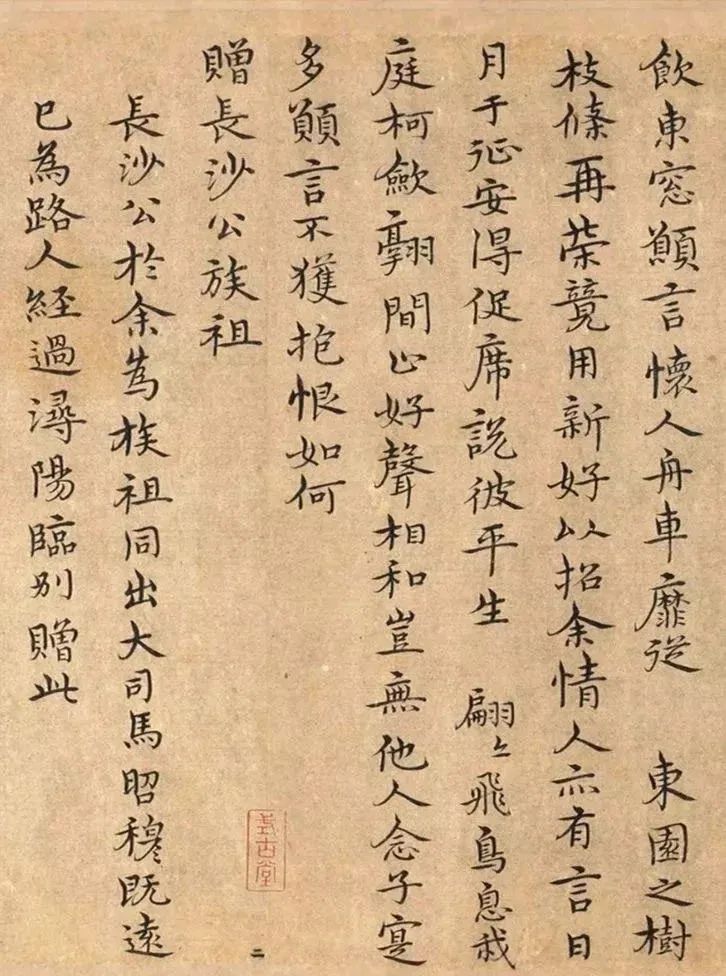 飲東窓願言懷人舟車靡從　東園之樹
枝條再榮競用新好以招余情人亦有言日
月于征安得促席說彼平生　翩〻飛鳥息我
庭柯斂翮閒止好聲相和豈無他人念子寔
多願言不獲抱恨如何
贈長沙公族祖
長沙公於余為族祖同出大司馬昭穆既遠
已為路人經過潯陽臨別贈此
二